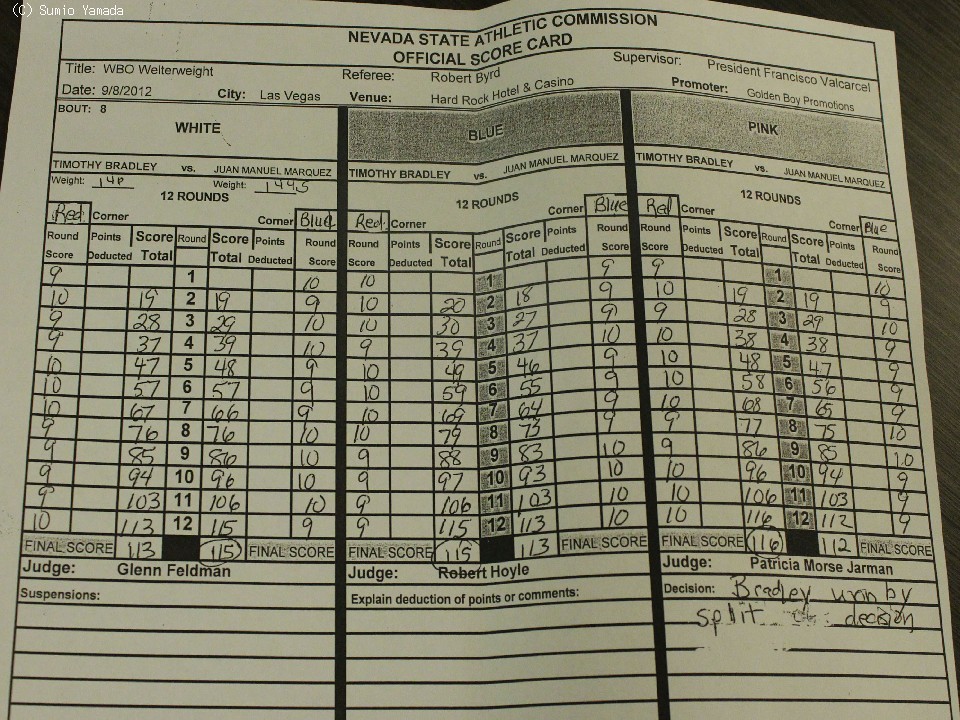 (C) Sumio Yamada
NEVADA STATE ATHLETIC COMMISSION
OFFICIAL SCORE CARD
Title: WBO Welterweight Referee: Robert Byrd Supervisor: President Francisco Valcarcel
Date: 9/8/2012 City: Las Vegas Venue: Hard Rock Hotel & Casino Promoter: Golden Boy Promotions
BOUT: 8
WHITE
TIMOTHY BRADLEY vs. JUAN MANUEL MARQUEZ
Weight: Weight: 144.5
12 ROUNDS
Red Corner Corner Blue
Round Score Points Deducted Score Total Round Score Total Points Deducted Round Score
9 1 10
10 19 2 19 9
9 28 3 29 10
9 37 4 39 10
10 47 5 48 9
10 57 6 57 9
10 67 7 66 9
9 76 8 76 10
9 85 9 86 10
9 94 10 96 10
9 103 11 106 10
10 113 12 115 9
FINAL SCORE 113 115 FINAL SCORE
Judge: Glenn Feldman
Suspensions:
BLUE
TIMOTHY BRADLEY vs. JUAN MANUEL MARQUEZ
12 ROUNDS
Red Corner Corner Blue
Round Score Points Deducted Score Total Round Score Total Points Deducted Round Score
10 1 9
10 20 2 18 9
10 30 3 27 9
9 39 4 37 10
10 49 5 46 9
10 59 6 55 9
10 69 7 64 9
10 79 8 73 9
9 88 9 83 10
9 97 10 93 10
9 106 11 103 10
9 115 12 113 10
FINAL SCORE 115 113 FINAL SCORE
Judge: Robert Hoyle
Explain deduction of points or comments:
PINK
TIMOTHY BRADLEY vs. JUAN MANUEL MARQUEZ
12 ROUNDS
Red Corner Corner Blue
Round Score Points Deducted Score Total Round Score Total Points Deducted Round Score
9 1 10
10 19 2 19 9
9 28 3 29 10
10 38 4 38 9
10 48 5 47 9
10 58 6 56 9
10 68 7 65 9
9 77 8 75 10
9 86 9 85 10
10 96 10 94 9
10 106 11 103 9
10 116 12 112 9
FINAL SCORE 116 112 FINAL SCORE
Judge: Patricia Morse Jarman
Decision: Bradley win by
split decision